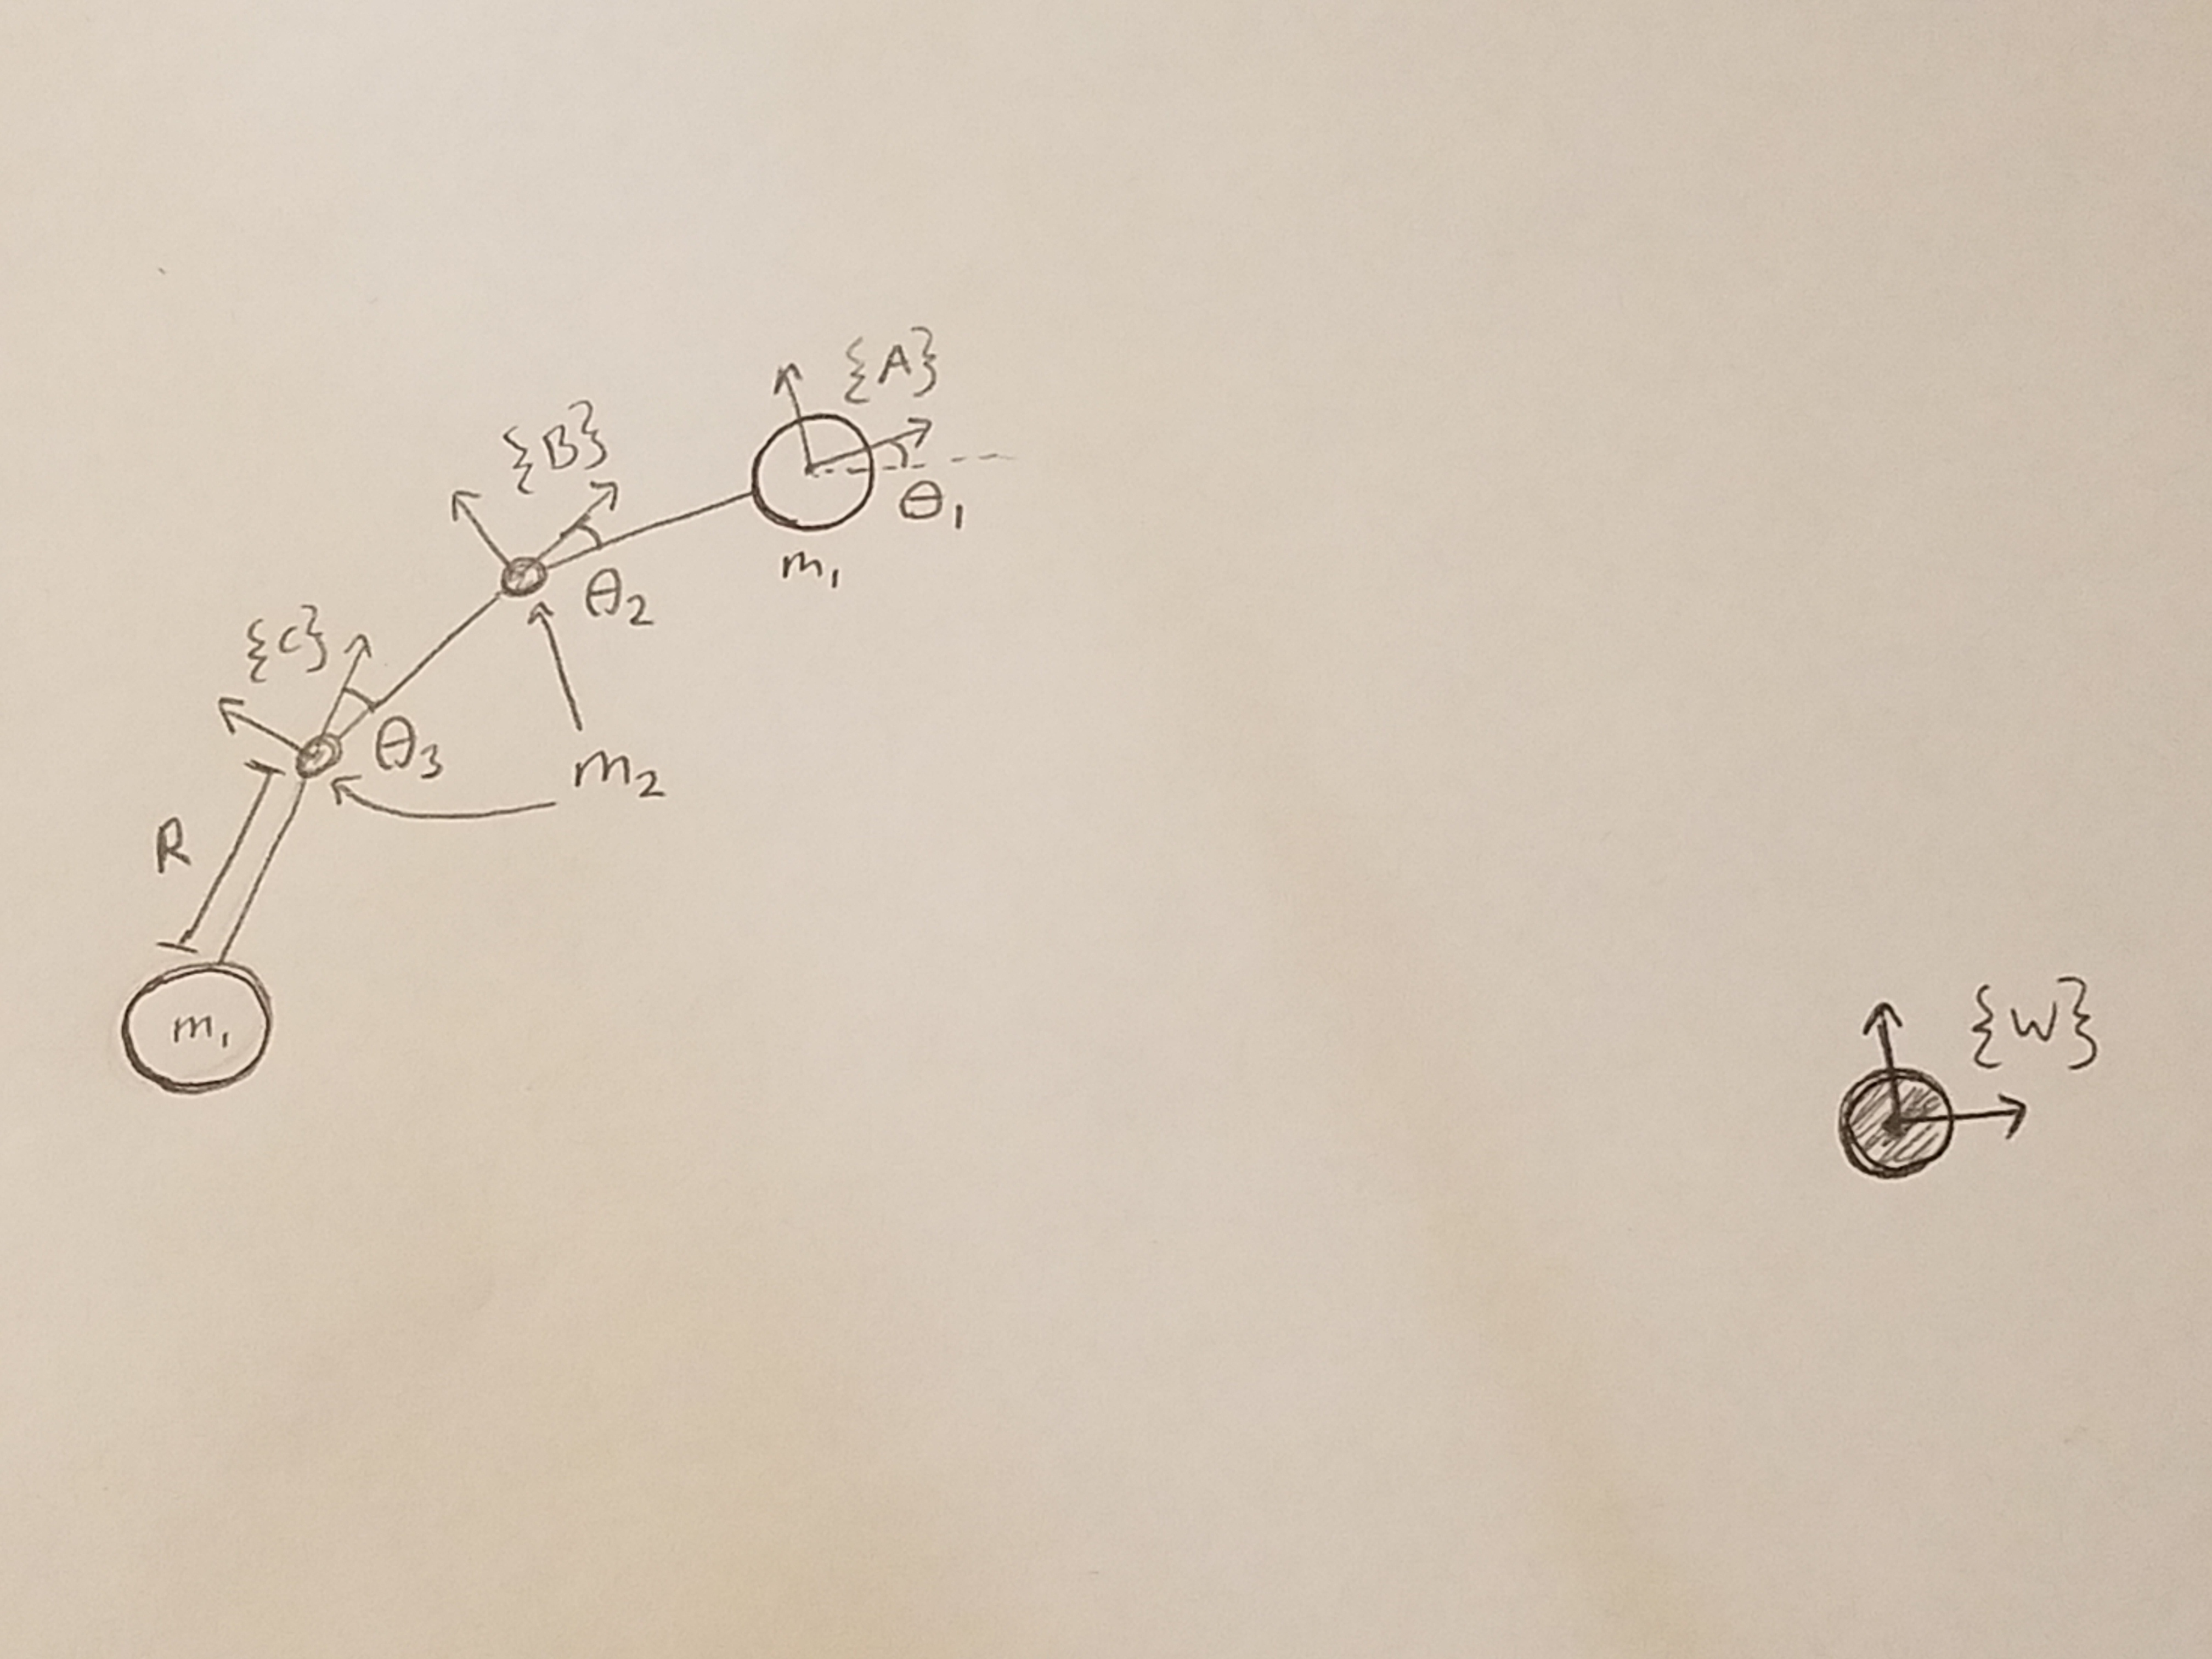 {A}
{B}
θ₁
m₁
θ₂
{C}
θ₃
m₂
R
m₁
{W}